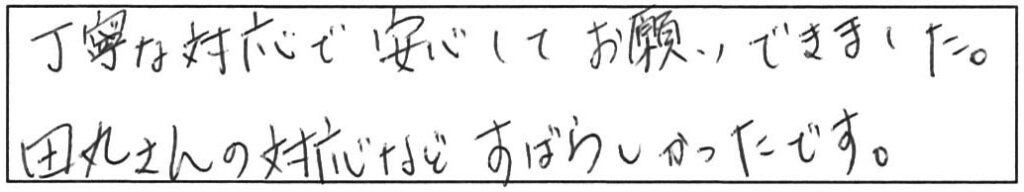 丁寧な対応で安心してお願いできました。
田丸さんの対応などすばらしかったです。